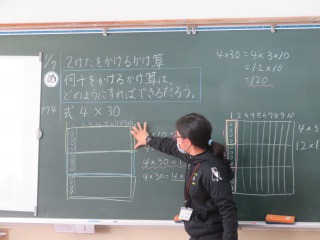 1/7
2けたをかけるかけ算
め
何十をかけるかけ算は、
どのようにすればできるだろう。
P94
式 4×30
1 2 3 4 5 6 7 8 9 10
4×30=
4×30=4×
4×30=4×3×10
=12×10
=120
1 2 3 4 5 6 7 8 9 10
4×3
12×1